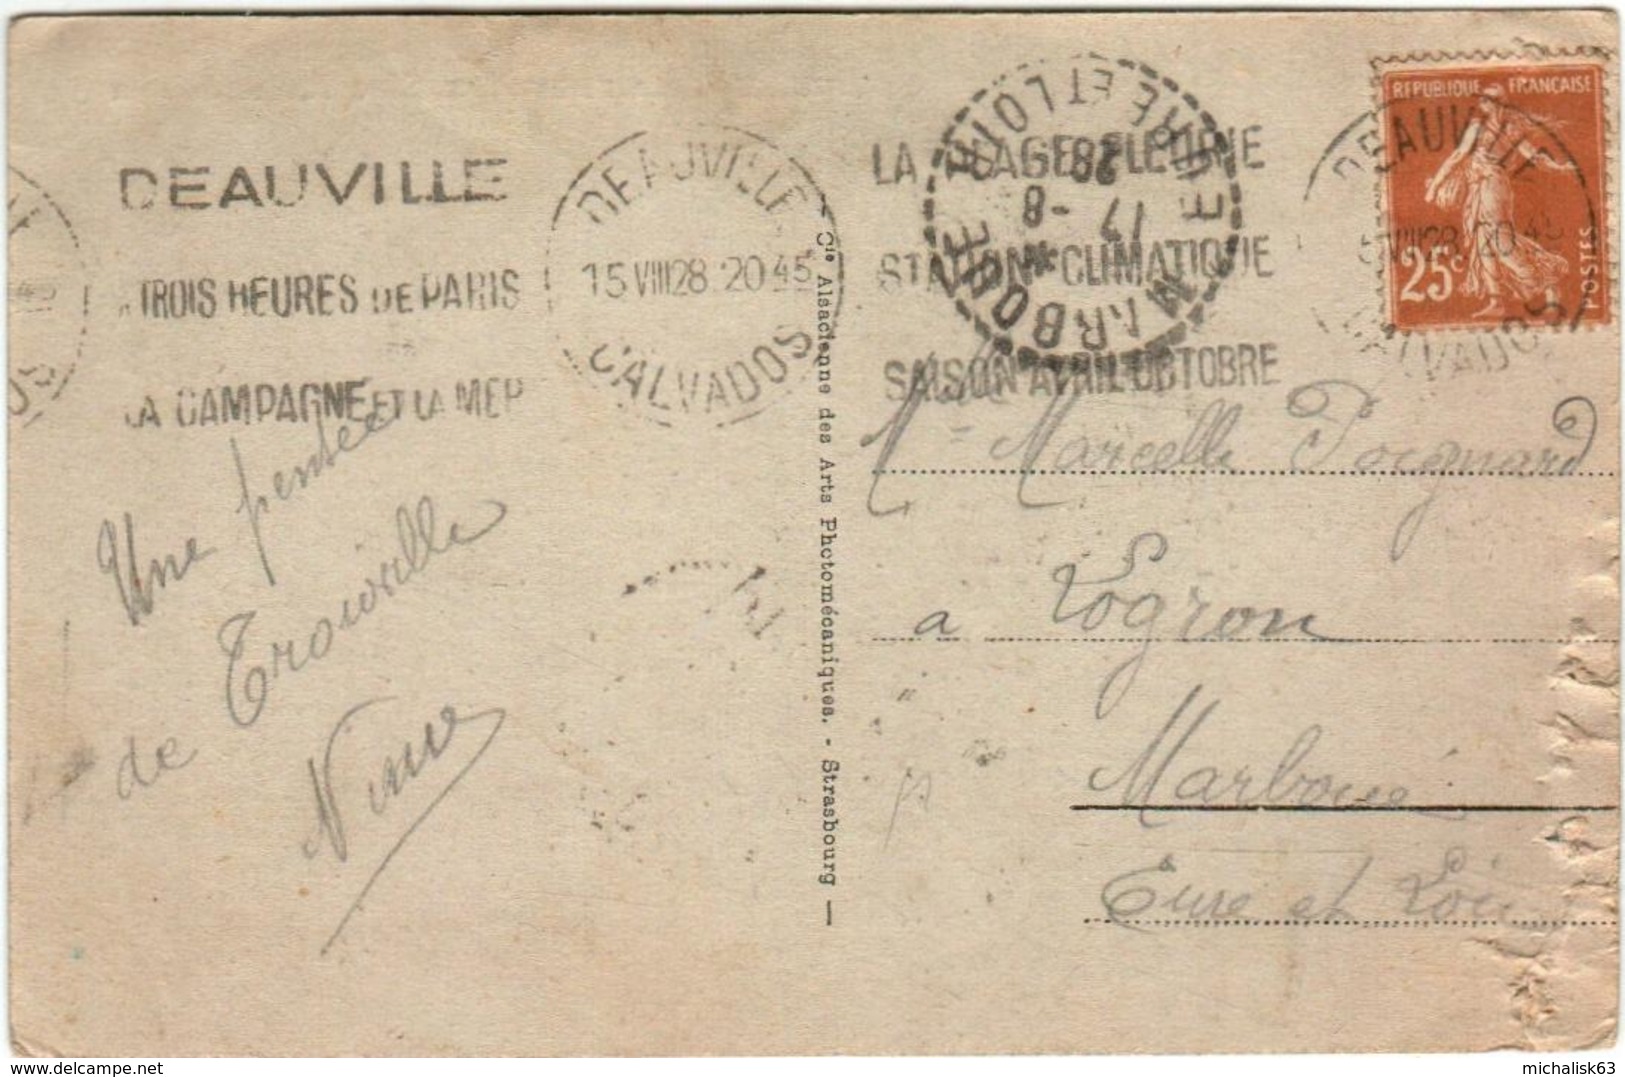 DEAUVILLE
A TROIS HEURES DE PARIS
LA CAMPAGNE ET LA MER
DEAUVILLE
15 VIII 28 20 45
CALVADOS
LA PLAGE FLEURIE
STATION CLIMATIQUE
SAISON AVRIL OCTOBRE
MARBOUÉ
EURE ET LOIR
17 -8
28
REPUBLIQUE FRANÇAISE
25c
POSTES
DEAUVILLE
5 VIII 28 20 45
CALVADOS
Une pensée
de Trouville
Cie Alsacienne des Arts Photomécaniques. - Strasbourg
Marcelle Poignard
a Logron
Marboué
Eure et Loir
delcampe.net
michalisk63